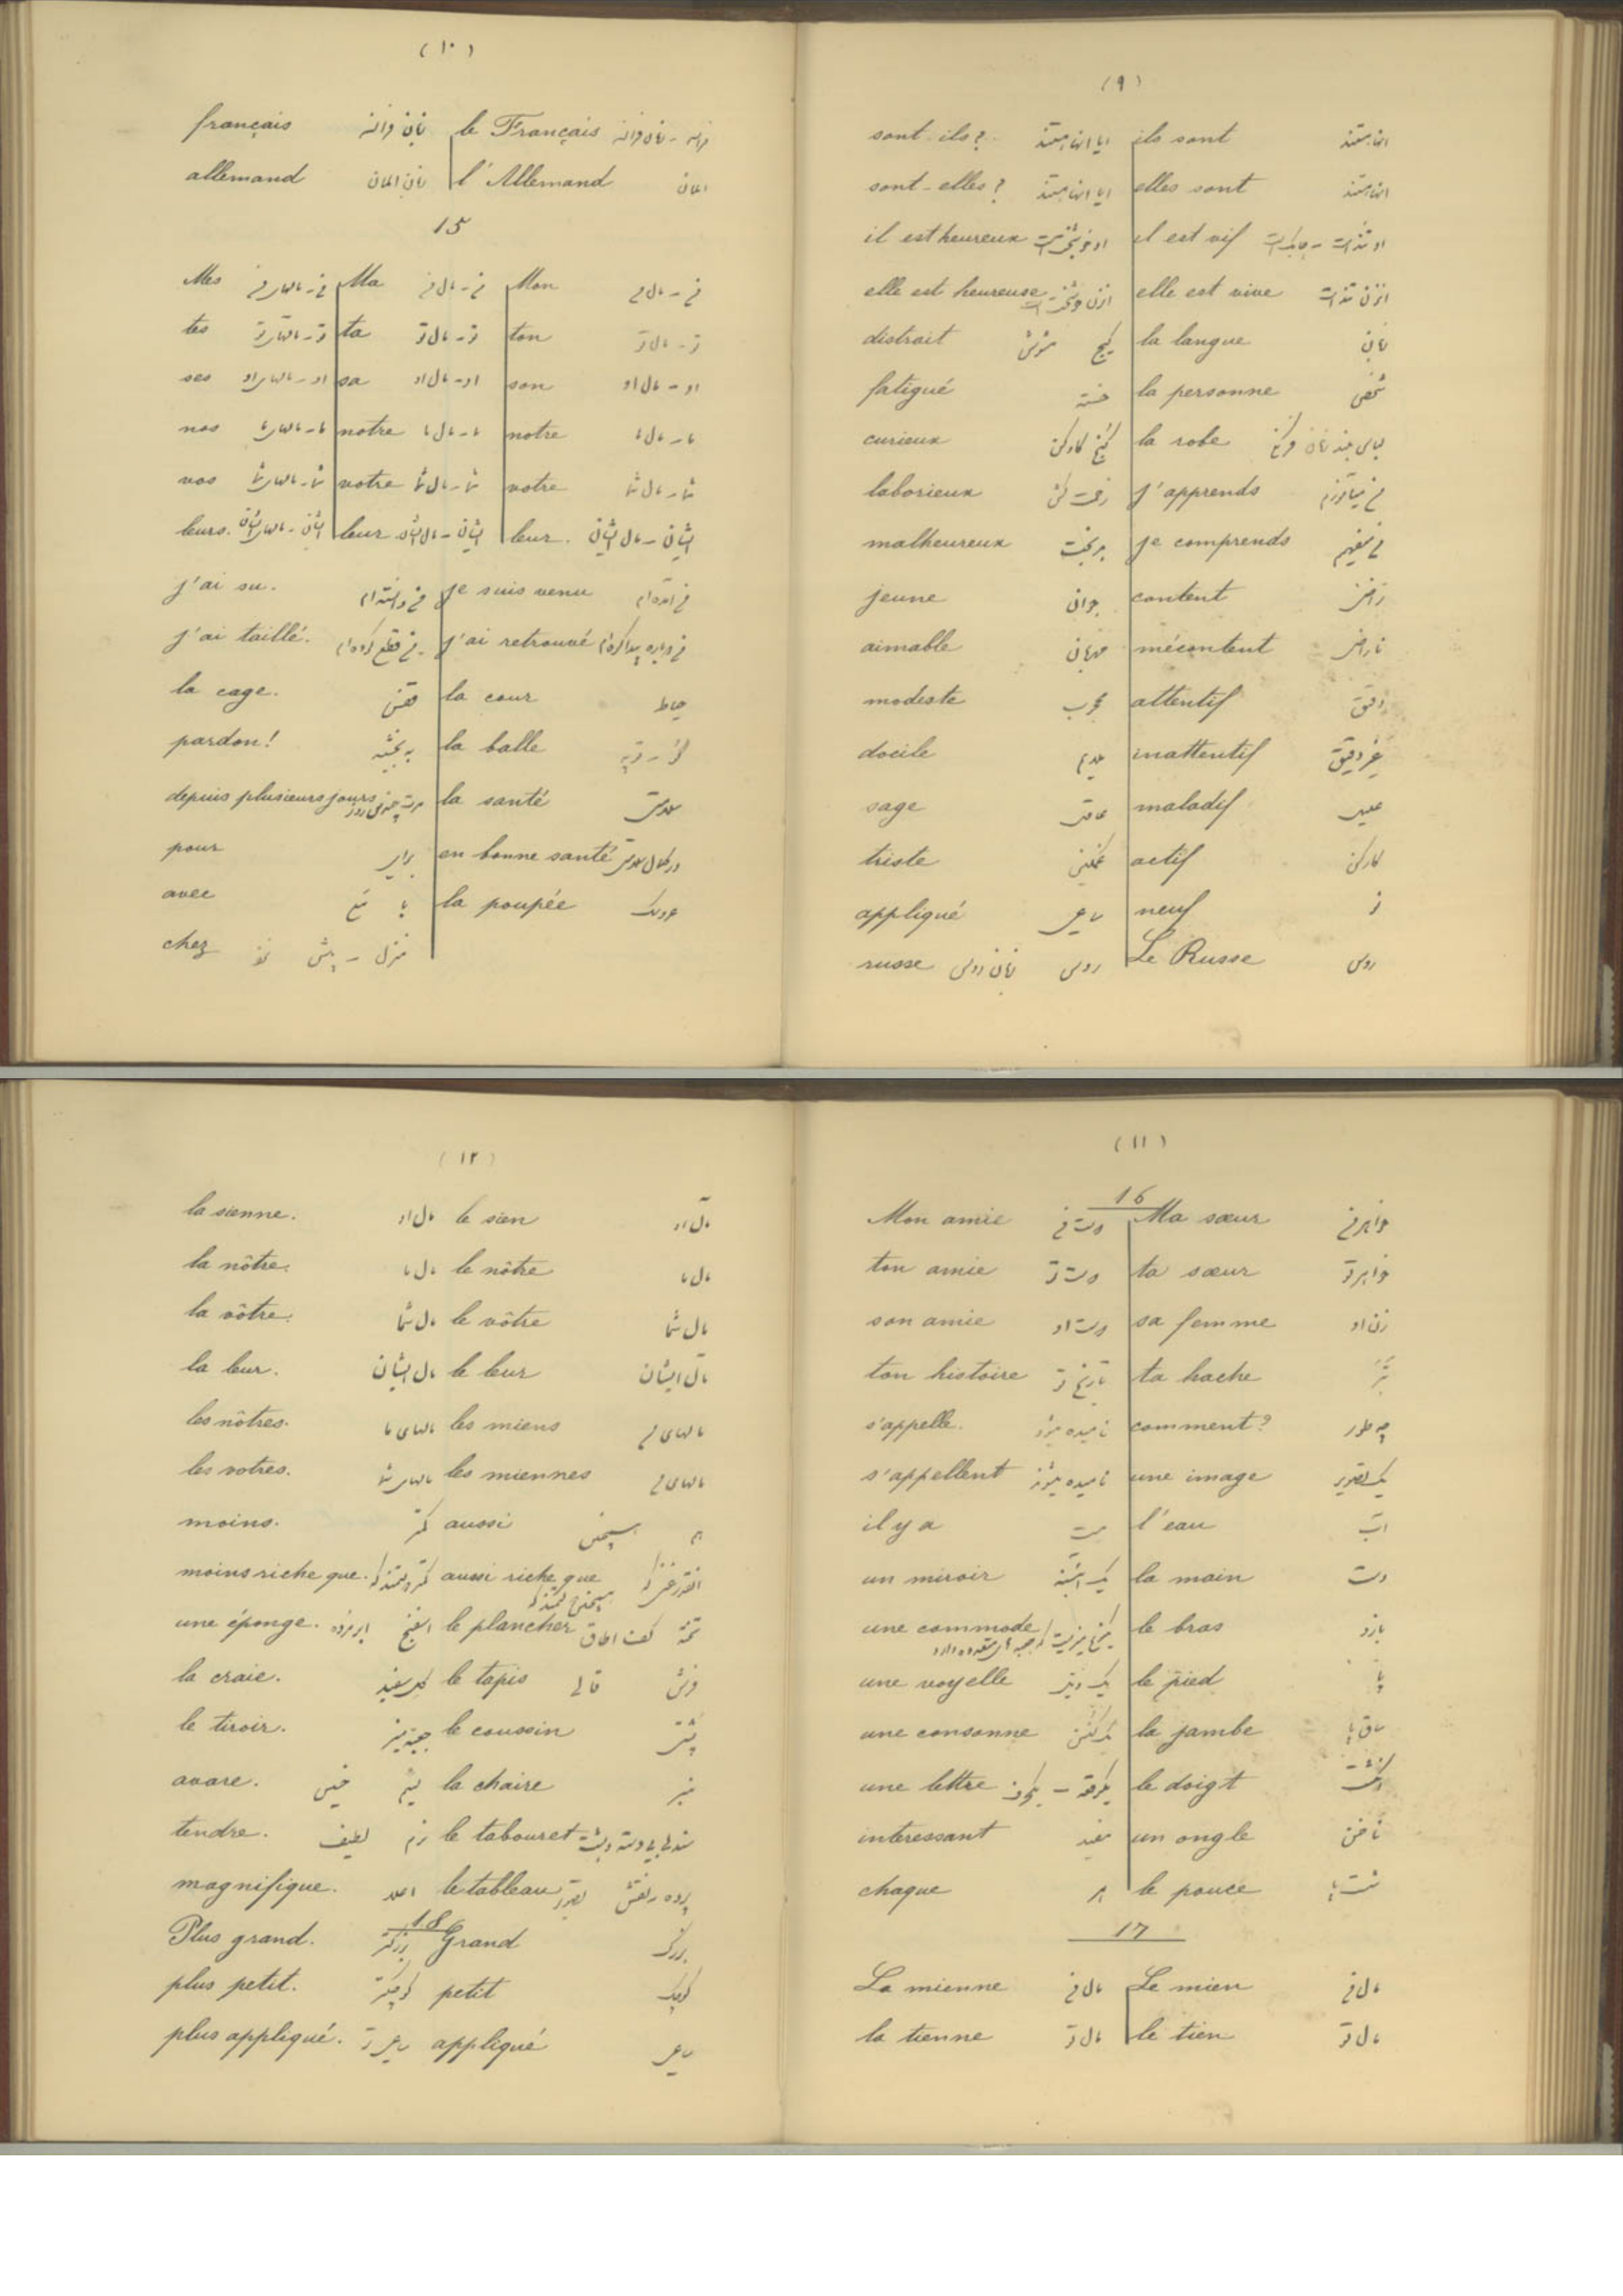 (٩)
sont-ils? ایا انها هستند ils sont انها هستند
sont-elles? ایا انها هستند elles sont انها هستند
il est heureux او خوشبخت است il est vif او تند است
elle est heureuse elle est vive انزن تند است
distrait گیج la langue زبان
fatigué خسته la personne شخص
curieux la robe
laborieux زحمت کش j'apprends من میآموزم
malheureux بدبخت je comprends من میفهمم
jeune جوان content راضی
aimable مهربان mécontent ناراضی
modeste attentif دقیق
docile inattentif غیر دقیق
sage عاقل maladif علیل
triste غمگین actif کارکن
appliqué ساعی neuf نو
russe زبان روسی روسی Le Russe روسی
(١٠)
français زبان فرانسه le Français
allemand زبان المان l'Allemand المان
15
Mes من - مالهای من Ma من - مال من Mon من - مال من
tes تو - مالهای تو ta تو - مال تو ton تو - مال تو
ses او - مالهای او sa او - مال او son او - مال او
nos ما - مالهای ما notre ما - مال ما notre ما - مال ما
vos شما - مالهای شما votre شما - مال شما votre شما - مال شما
leurs. ایشان - مالهای ایشان leur ایشان - مال ایشان leur. ایشان - مال ایشان
j'ai su. من دانسته ام je suis venu من آمده ام
j'ai taillé. من قطع کرده ام j'ai retrouvé من دوباره پیدا کرده ام
la cage. قفس la cour حیاط
pardon! به بخشید la balle
depuis plusieurs jours la santé سلامتی
pour برای en bonne santé در کمال سلامتی
avec با مع la poupée عروسک
chez منزل - پیش نزد
(١١)
16
Mon amie دوست من Ma sœur خواهر من
ton amie دوست تو ta sœur خواهر تو
son amie دوست او sa femme زن او
ton histoire تاریخ تو ta hache تبر
s'appelle. نامیده میشود comment? چه طور
s'appellent نامیده میشوند une image یک تصویر
il y a هست l'eau آب
un miroir یک آئینه la main دست
une commode le bras بازو
une voyelle le pied پا
une consonne la jambe ساق پا
une lettre le doigt انگشت
interessant مفید un ongle ناخن
chaque هر le pouce شست
17
La mienne مال من Le mien مال من
la tienne مال تو le tien مال تو
(١٢)
la sienne. مال او le sien مال او
la nôtre. مال ما le nôtre مال ما
la vôtre. مال شما le vôtre مال شما
la leur. مال ایشان le leur مال ایشان
les nôtres. مالهای ما les miens مالهای من
les votres. مالهای شما les miennes مالهای من
moins. کمتر aussi همچنین
moins riche que. aussi riche que
une éponge. اسفنج le plancher تخته کف اطاق
la craie. گل سفید le tapis فرش قالی
le tiroir. le coussin پشتی
avare. لئیم خسیس la chaire منبر
tendre. نرم لطیف le tabouret
magnifique. اعلا le tableau پرده نقش
18
Plus grand. بزرگتر Grand بزرگ
plus petit. کوچکتر petit کوچک
plus appliqué. ساعی تر appliqué ساعی